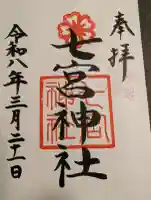 奉拝
七宮神社
令和八年三月二十一日